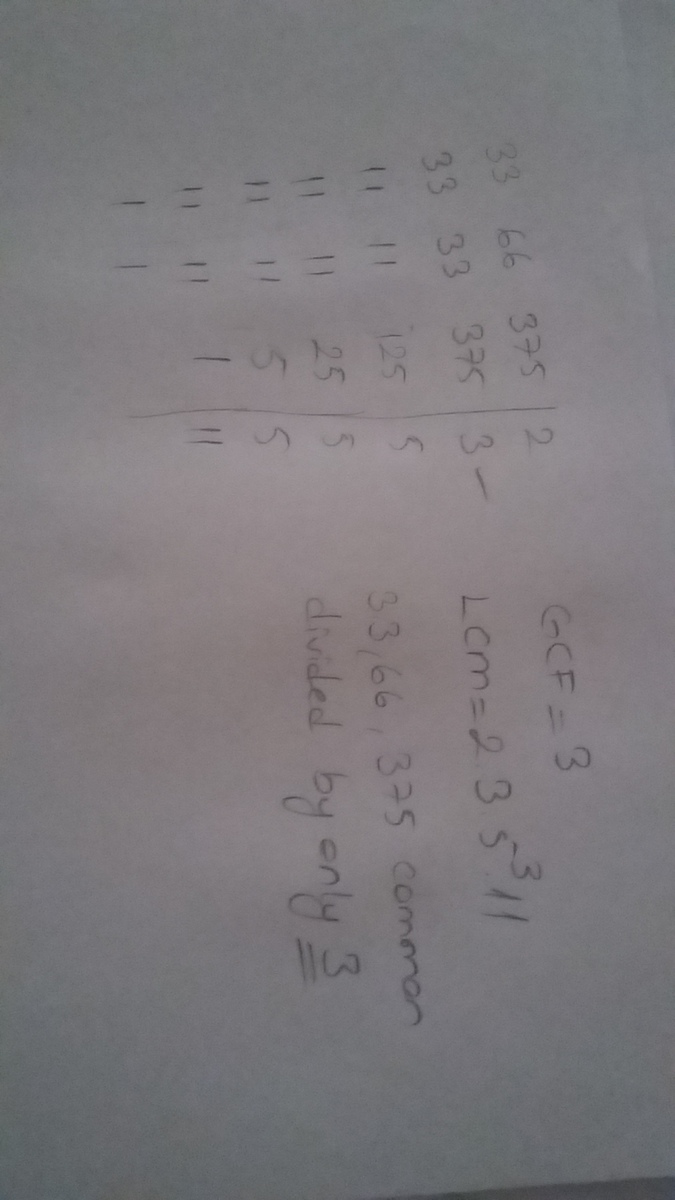 33 66 375 | 2
33 33 375 | 3 –
11 11 125 | 5
11 11 25 | 5
11 11 5 | 5
11 11 1 | 11
1 1
GCF = 3
LCM = 2.3.5³.11
33, 66, 375 common
divided by only 3